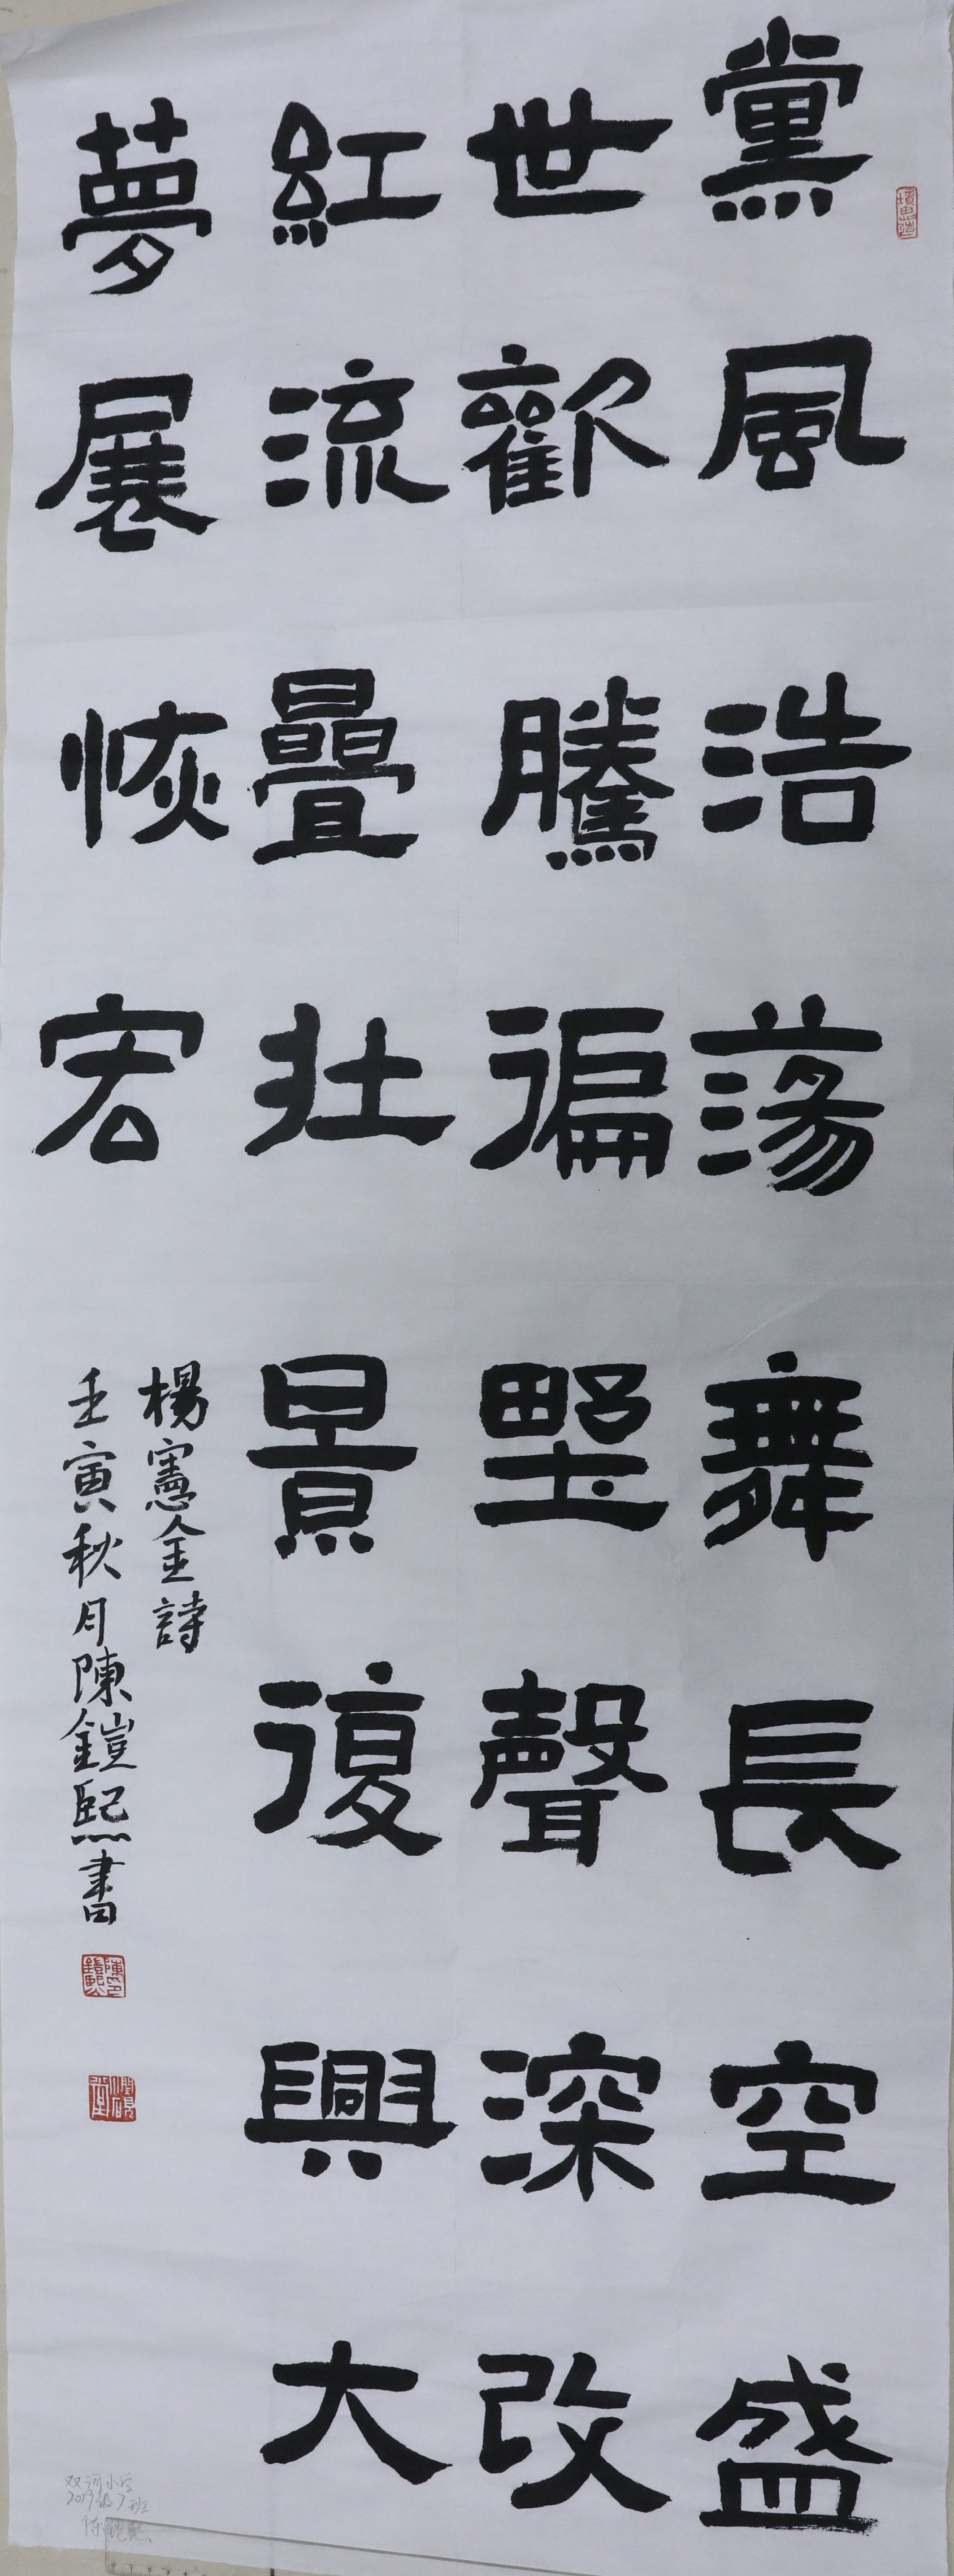 黨風浩蕩舞長空盛
世歡騰徧野聲深改
紅流疊壯景復興大
夢展恢宏
楊憲金詩
壬寅秋月陳鎧熙書
双河小学
2019级7班